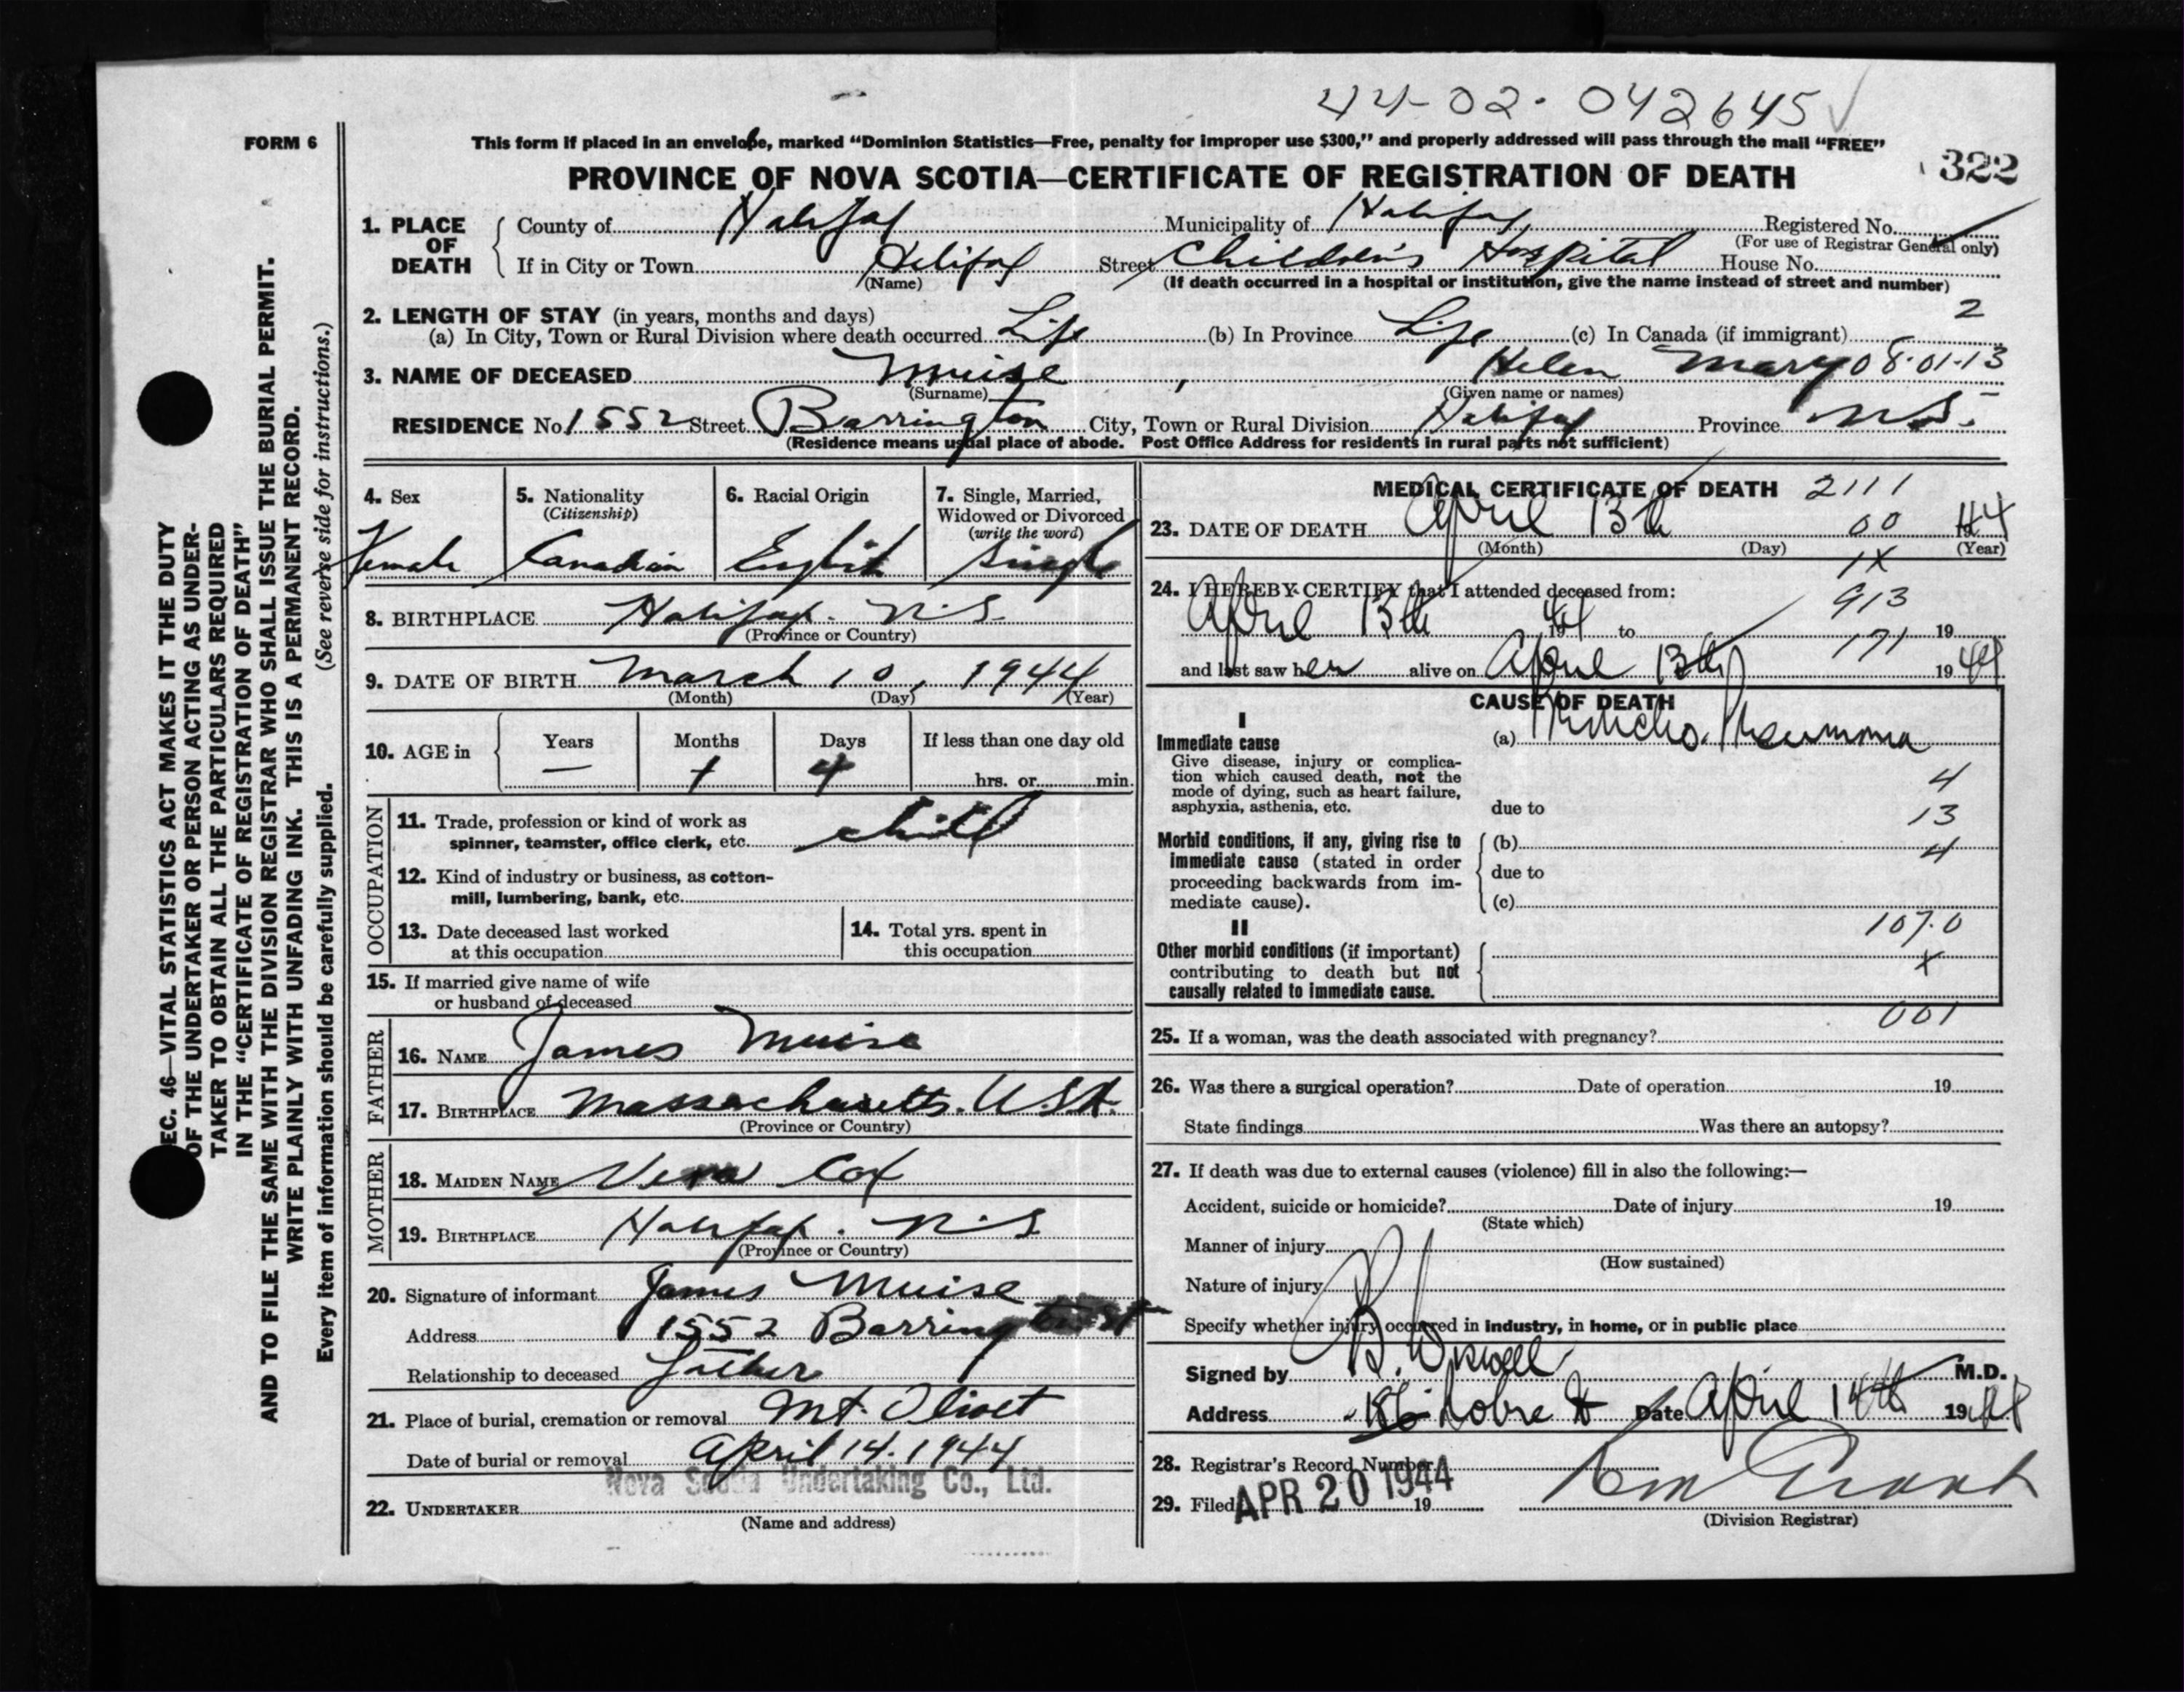 44-02-042645
FORM 6
This form if placed in an envelope, marked “Dominion Statistics—Free, penalty for improper use $300,” and properly addressed will pass through the mail “FREE”
PROVINCE OF NOVA SCOTIA—CERTIFICATE OF REGISTRATION OF DEATH
322
1. PLACE OF DEATH
County of Halifax Municipality of Halifax Registered No.
(For use of Registrar General only)
If in City or Town Halifax Street Children's Hospital House No.
(Name) (If death occurred in a hospital or institution, give the name instead of street and number)
2. LENGTH OF STAY (in years, months and days) 2
(a) In City, Town or Rural Division where death occurred Life (b) In Province Life (c) In Canada (if immigrant)
3. NAME OF DECEASED Muise, Helen Mary 08-01-13
(Surname) (Given name or names)
RESIDENCE No. 1552 Street Barrington City, Town or Rural Division Halifax Province N.S.
(Residence means usual place of abode. Post Office Address for residents in rural parts not sufficient)
4. Sex
Female
5. Nationality
(Citizenship)
Canadian
6. Racial Origin
English
7. Single, Married,
Widowed or Divorced
(write the word)
Single
8. BIRTHPLACE Halifax. N.S.
(Province or Country)
9. DATE OF BIRTH March 10, 1944
(Month) (Day) (Year)
10. AGE in Years Months Days If less than one day old
— 1 4 hrs. or min.
OCCUPATION
11. Trade, profession or kind of work as
spinner, teamster, office clerk, etc. child
12. Kind of industry or business, as cotton-
mill, lumbering, bank, etc.
13. Date deceased last worked
at this occupation
14. Total yrs. spent in
this occupation
15. If married give name of wife
or husband of deceased
FATHER
16. NAME James Muise
17. BIRTHPLACE Massachusetts. U.S.A.
(Province or Country)
MOTHER
18. MAIDEN NAME Vera Cox
19. BIRTHPLACE Halifax. N.S
(Province or Country)
20. Signature of informant James Muise
Address 1552 Barrington St
Relationship to deceased Father
21. Place of burial, cremation or removal Mt. Olivet
Date of burial or removal April 14. 1944
Nova Scotia Undertaking Co., Ltd.
22. UNDERTAKER
(Name and address)
MEDICAL CERTIFICATE OF DEATH 2111
23. DATE OF DEATH April 13th 00 1944
(Month) (Day) (Year)
1X
24. I HEREBY CERTIFY that I attended deceased from: 913
April 13th 1944 to 171 19
and last saw her alive on April 13th 1944
CAUSE OF DEATH
I
Immediate cause (a) Broncho. Pneumonia
Give disease, injury or complica-
tion which caused death, not the
mode of dying, such as heart failure,
asphyxia, asthenia, etc. due to
4
13
4
Morbid conditions, if any, giving rise to
immediate cause (stated in order
proceeding backwards from im-
mediate cause).
(b)
due to
(c)
107.0
II
Other morbid conditions (if important)
contributing to death but not
causally related to immediate cause.
X
001
25. If a woman, was the death associated with pregnancy?
26. Was there a surgical operation? Date of operation 19
State findings Was there an autopsy?
27. If death was due to external causes (violence) fill in also the following:—
Accident, suicide or homicide? Date of injury 19
(State which)
Manner of injury
(How sustained)
Nature of injury
Specify whether injury occurred in industry, in home, or in public place
Signed by M.D.
Address Date April 14th 1944
28. Registrar's Record Number
29. Filed APR 20 1944 19
(Division Registrar)
EC. 46—VITAL STATISTICS ACT MAKES IT THE DUTY
OF THE UNDERTAKER OR PERSON ACTING AS UNDER-
TAKER TO OBTAIN ALL THE PARTICULARS REQUIRED
IN THE “CERTIFICATE OF REGISTRATION OF DEATH”
AND TO FILE THE SAME WITH THE DIVISION REGISTRAR WHO SHALL ISSUE THE BURIAL PERMIT.
WRITE PLAINLY WITH UNFADING INK. THIS IS A PERMANENT RECORD.
Every item of information should be carefully supplied. (See reverse side for instructions.)